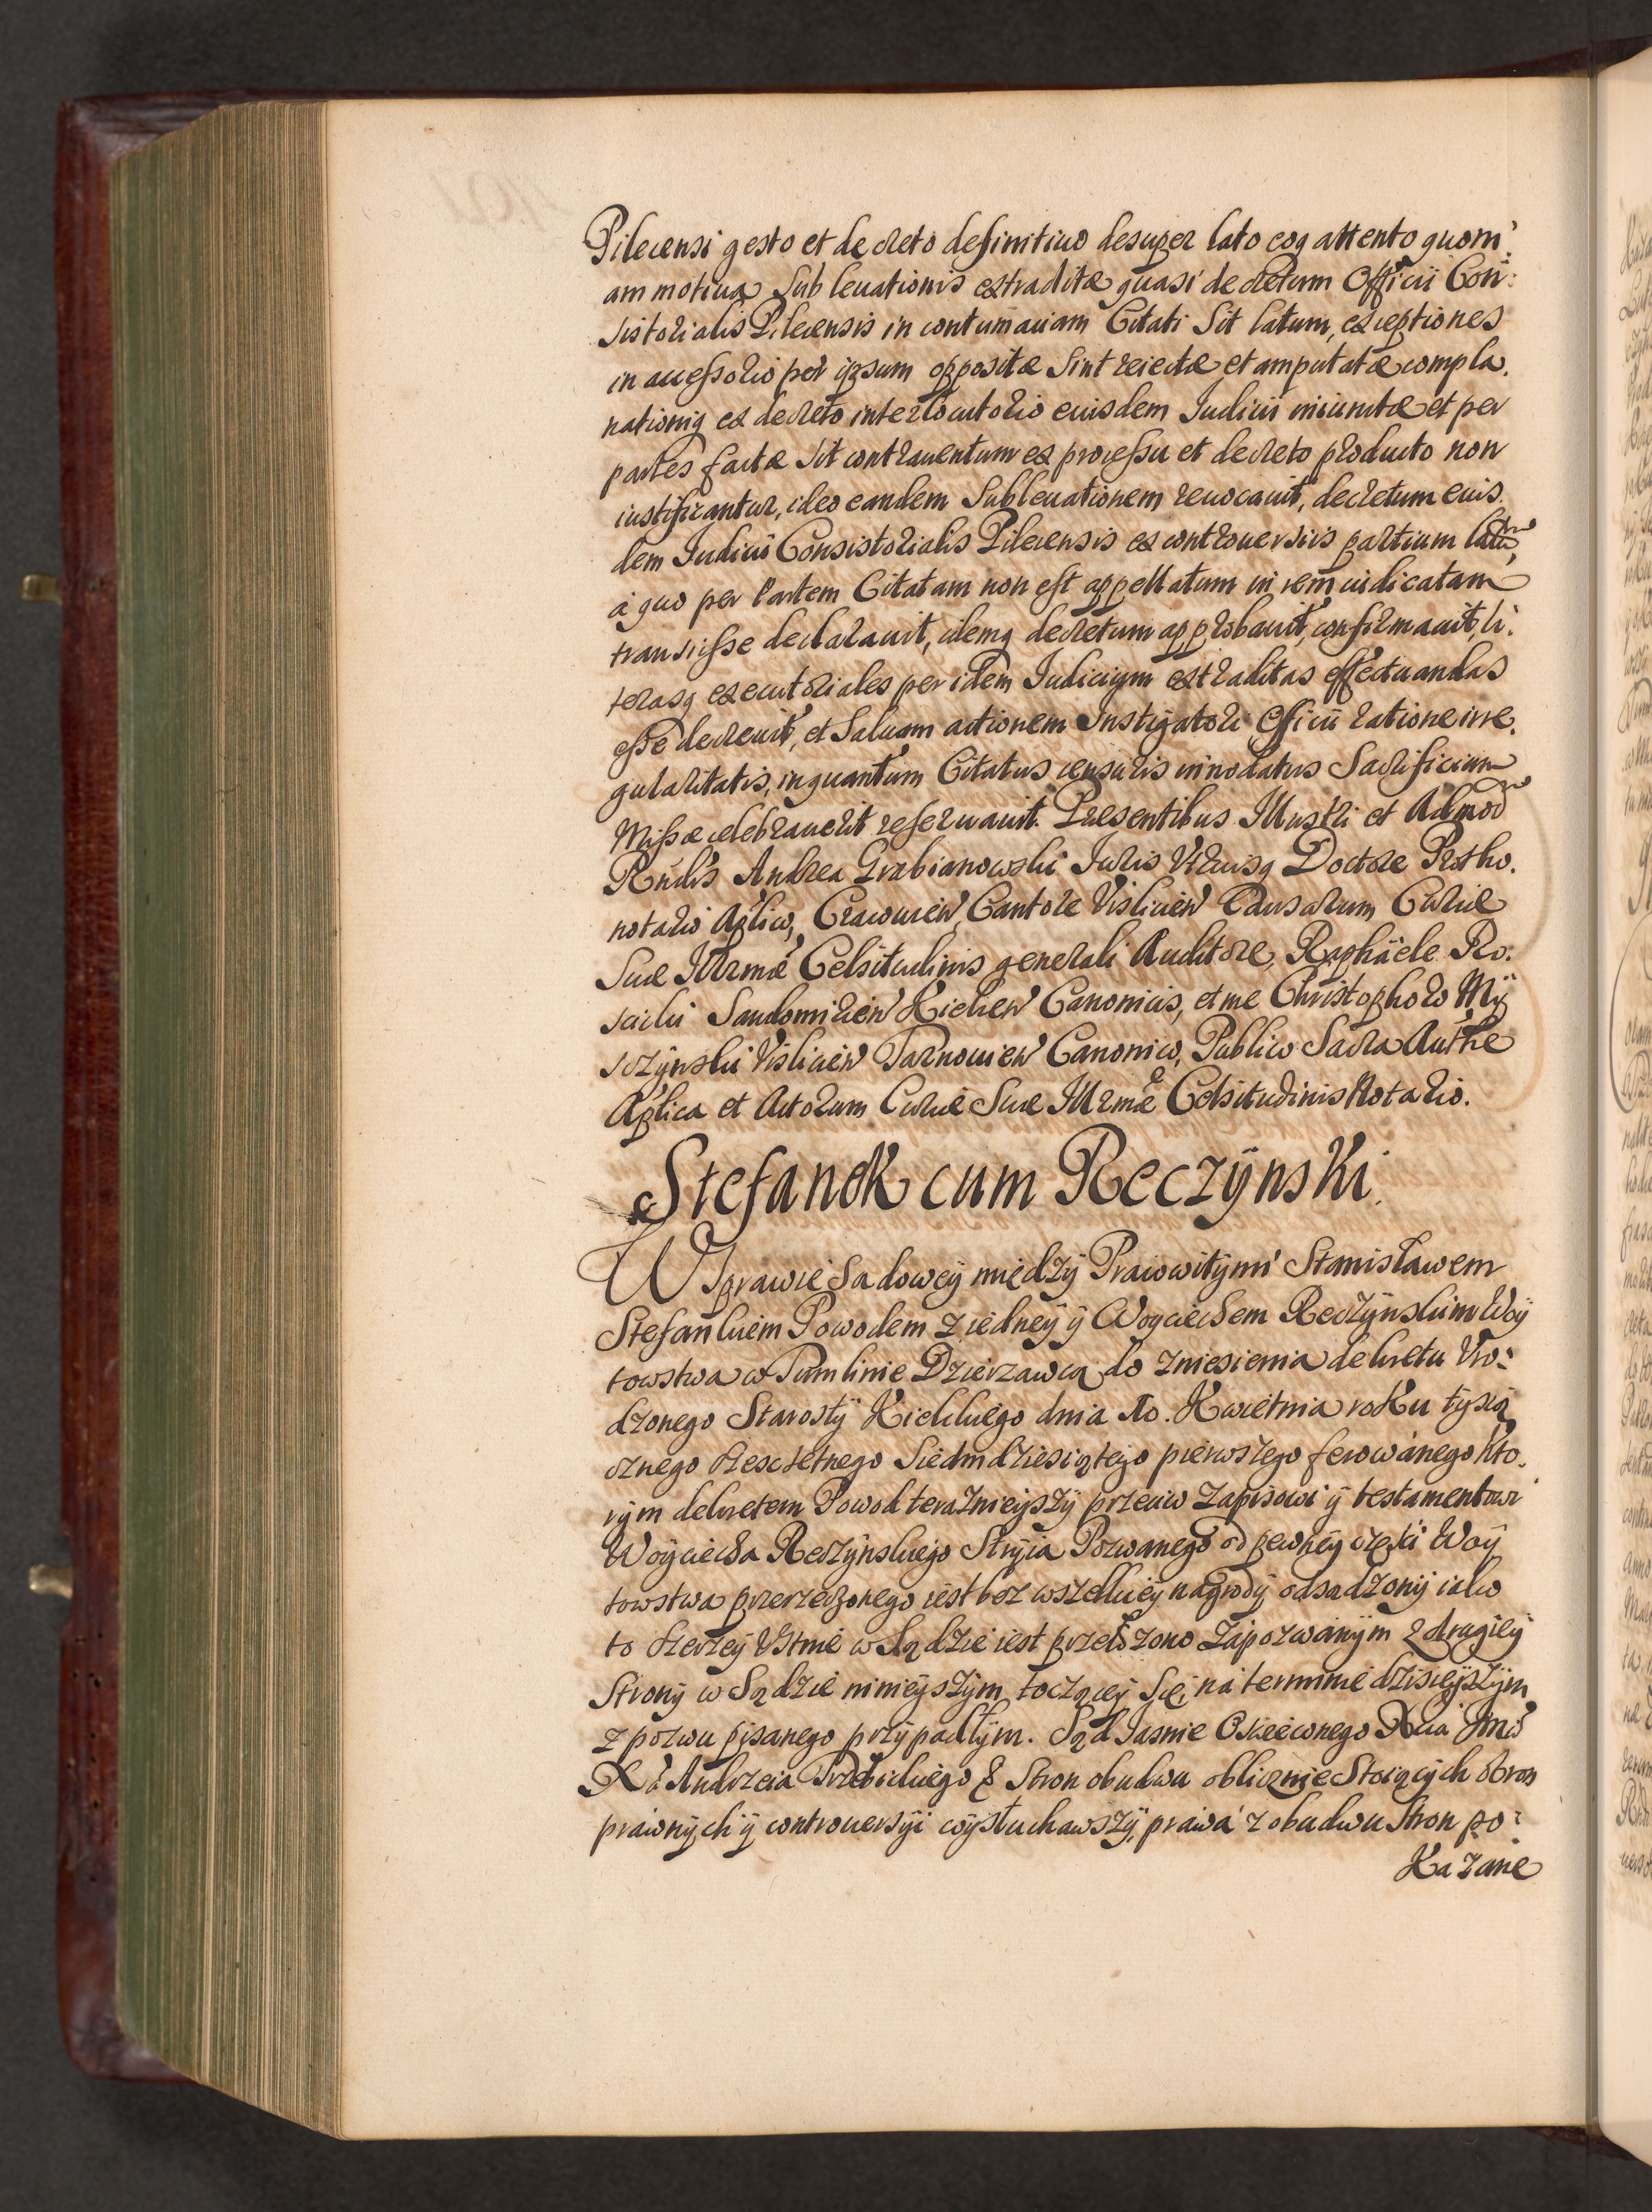 Pilecensi gesto et decreto definitiuo desuper lato eoq attento quoni:
am motiua Subleuationis extraditæ quasi decretum Officii Con:
sistorialis Pilecensis in contumaciam Citati Sit latum, exceptiones
in accessorio per ipsum oppositæ Sint reiectæ et amputatæ compla.
nationiq ex decreto interlocutorio euisdem Iudicii iniunctæ et per
partes factæ Sit contrauentum ex processu et decreto producto non
iustificantur, ideo eandem Subleuationem reuocauit, decretum euis.
dem Iudicii Consistorialis Pilecensis ex controuersiis partium latum
à quo per Partem Citatam non est appellatum in rem iudicatam
transisse declarauit, idemq decretum approbauit, confirmauit, li:
terasq executoriales per idem Iudicium extraditas effectuandas
esse decreuit, et Saluam actionem Instigatori Officii ratione irre.
gularitatis, inquantum Citatus censuris innodatus Sacrificium
Missæ celebrauerit reseruauit. Præsentibus Illustri et Admod
Rndis Andrea Grabianowski Iuris Vtriusq Doctore Protho.
notario Aplico, Cracouien Cantore Vislicien Causarum Curiæ
Suæ Illrmæ Celsitudinis generali Auditore, Raphaele Ro:
scicki Sandomirien Kielcen Canonicis, et me Christophoro My
sczynski Vislicien Tarnouien Canonico, Publico Sacra Authe
Aplica et Actorum Curiæ Suæ Illrmæ Celsitudinis Notario.
Stefanek cum Reczÿnski.
W Sprawie Sadoweÿ międzÿ Pracowitÿmi Stanisławem
Stefankiem Powodem z iedneÿ ÿ Woyciechem Reczÿnskim Woÿ
towstwa w Tumlinie Dzierzawcą do zniesienia dekretu Vro:
dzonego Starostÿ Kielckiego dnia 10. Kwietnia roKu tysią
cznego szescsetnego Siedmdziesiątego pierwszego ferowanego Kto.
rÿm dekretem Powod teraznieÿszÿ przeciw Zapisowi ÿ testamentowi
Woÿciecha Reczÿnskiego Strÿia Pozwanego od pewneÿ częsci Woÿ
towstwa przerzeczonego iest bez wszelkieÿ nagrodÿ odsadzonÿ iako
to szerzeÿ Vstnie w Sądzie iest przełozono Zapozwanÿm z drugieÿ
Stronÿ w Sądzie ninieÿszÿm toczącej Się, na terminie dzisieÿszÿm
z pozwu pisanego przÿpadłÿm. Sąd Iasnie Oswieconego Xcia Jmci
Xa Andrzeia Trzebickiego & Stron obudwu oblicznie Stoiącÿch obron
prawnÿch ÿ controuersÿi wÿsłuchawszÿ, prawa z obudwu Stron po:
Kazane